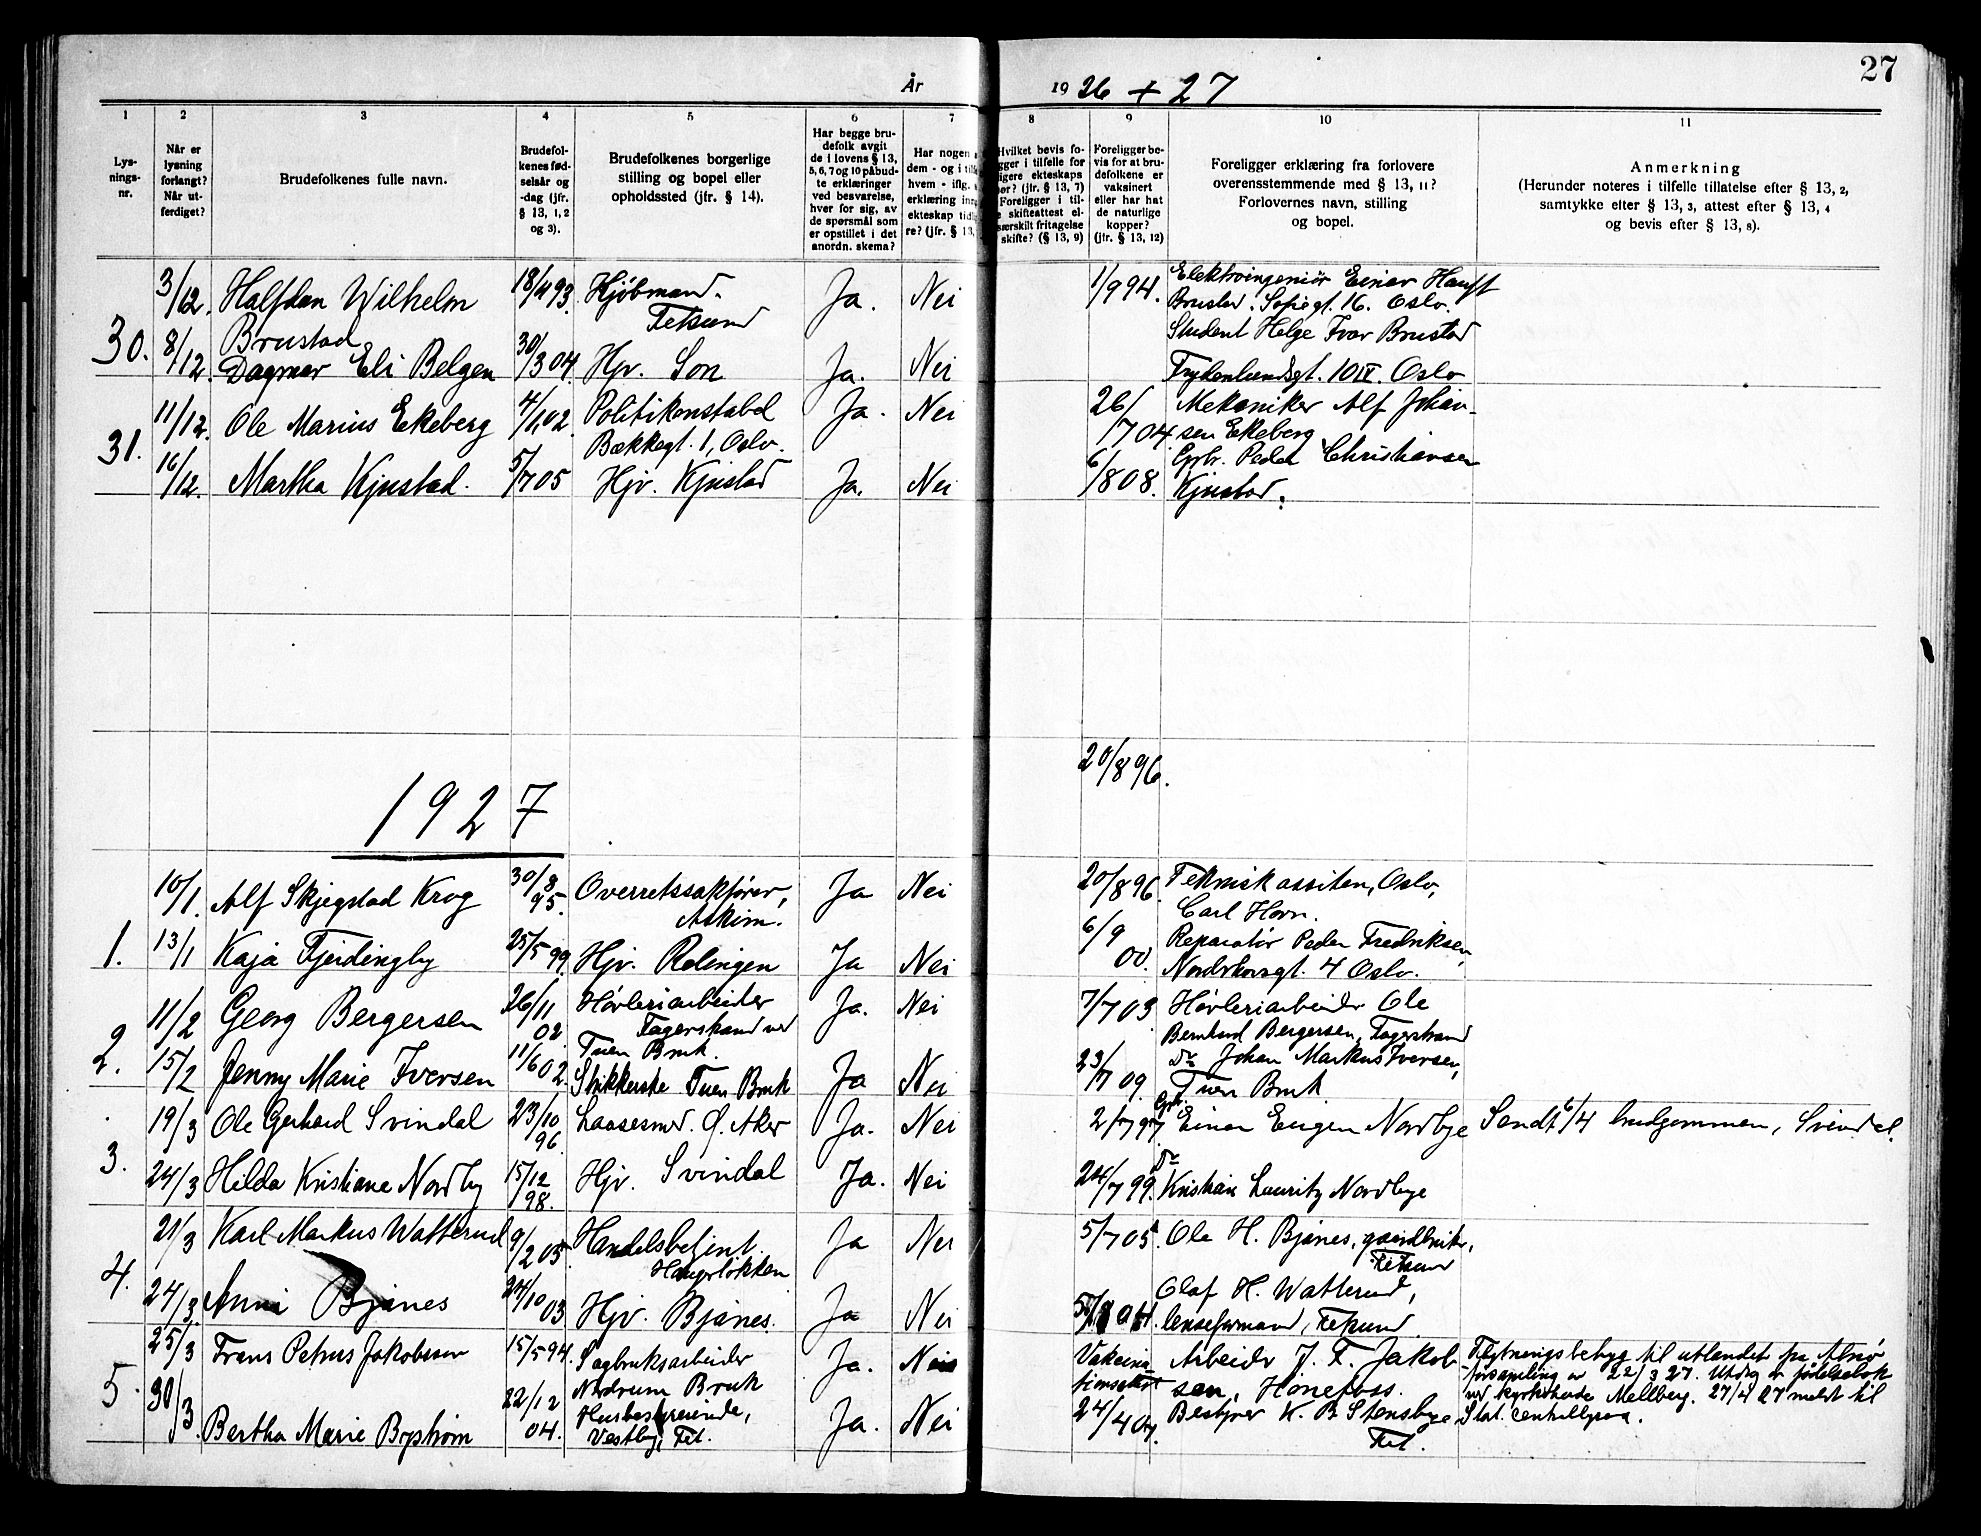 27
År 1926 + 27
1 2 3 4 5 6 7 8 9 10 11
Lys-
nings-
nr.
Når er
lysning
forlangt?
Når ut-
ferdiget?
Brudefolkenes fulle navn.
Brudefol-
kenes fød-
selsår og
-dag (jfr.
§ 13, 1, 2
og 3).
Brudefolkenes borgerlige
stilling og bopel eller
opholdssted (jfr. § 14).
Har begge bru-
defolk avgit
de i lovens § 13,
5, 6, 7 og 10 påbud-
te erklæringer
ved besvarelse,
hver for sig, av
de spørsmål som
er opstillet i det
anordn. skema?
Har nogen
dem - og i
hvem - iflg.
erklæring inn
ekteskap tidl
re? (jfr. § 13,
Hvilket bevis fo-
gger i tilfelle for
ligere ekteskaps
or? (jfr. § 13, 7)
Foreligger i til-
e skifteattest el-
særskilt fritagelse
skifte? (§ 13, 9)
Foreligger be-
vis for at bru-
defolkene er
vaksinert
eller har hat
de naturlige
kopper?
(jfr. § 13, 12)
Foreligger erklæring fra forlovere
overensstemmende med § 13, 11?
Forlovernes navn, stilling
og bopel.
Anmerkning
(Herunder noteres i tilfelle tillatelse efter § 13, 2,
samtykke efter § 13, 3, attest efter § 13, 4
og bevis efter § 13, 8).
3/12. Halfdan Wilhelm 18/11 93. Kjøbmand. Ja. Nei 1/9 94. Elektroingeniør Einar Hauft
Brustad Fetsund Brustad. Sofiegt. 16. Oslo.
30. 8/12. Dagmar Eli Belgen 30/3 04. Hjv. Son Ja. Nei Student Helge Ivar Brustad
Frydenlundsgt. 10 IV. Oslo
11/12. Ole Marius Ekeberg 4/1 02. Politikonstabel Ja. Nei 26/7 04. Mekaniker Alf Johan-
31. Bækkegt. 1, Oslo. sen Ekeberg
16/12. Martha Kjustad. 5/7 05 Hjv. Kjustad Ja. Nei 6/8 08. Gbr. Peder Christiansen
Kjustad.
20/8 96.
1927
10/1. Alf Skjegstad Krog 30/8 95. Overretssakfører, Ja Nei 20/8 96. Teknisk assiten, Oslo,
Askim. Carl Horn.
1. 13/1 Kaja Fjeldingby 25/5 99. Hjv. Relingen Ja Nei 6/9 00. Reparatør Peder Fredriksen,
Nordskovsgt. 4 Oslo.
11/2 Georg Bergersen 26/11 02. Høvleriarbeider Ja. Nei 7/7 03 Høvleriarbeider Ole
Fagerstrand ved Bernhard Bergersen, Fagerstrand
2. Tuen Bruk.
15/2 Jenny Marie Iversen 11/6 02. Strikkerske Tuen Bruk Ja Nei 23/7 09. Do Johan Markus Iversen,
Tuen Bruk
19/3 Ole Gerhard Svindal 23/10 96. Ø. Aker Ja. Nei 2/7 97 Gbr. Einar Eugen Nordbye Sendt 6/4 brudgommen, Svindal.
3. 24/3 Hilda Kristiane Nordby 15/12 98. Hjv. Svindal Ja. Nei 24/7 99. Do Kristian Lauritz Nordbye
21/3 Karl Markus Watterud 9/2 05. Handelsbetjent. Ja Nei 5/7 05. Ole H. Bjanes, gaardbruker,
Haugsløkken Fetsund
4. 24/3. Anni Bjanes 24/10 03 Hjv. Bjanes. Ja Nei Olaf H. Watterud,
lenseformand, Fetsund.
25/3 Frans Petrus Jakobsson 15/5 94. Sagbruksarbeider Ja. Nei Vakcina- Arbeider J. F. Jakob- Flytningsbetyg til utlandet fra Alnö
Nordrum Bruk tionsattest sen, Hønefoss. församling av 22/3 27. Utdrag av födelsebok
5. 30/3. Bertha Marie Bystrøm 22/12 04. Husbestyrerinde, Ja. Nei 24/4 04. Bestyrer K. B. Stensbye ved kyrkoherde Mellberg. 27/4 27 meldt til
Vestby, Fet. Fet. Stat. centralbyraa.